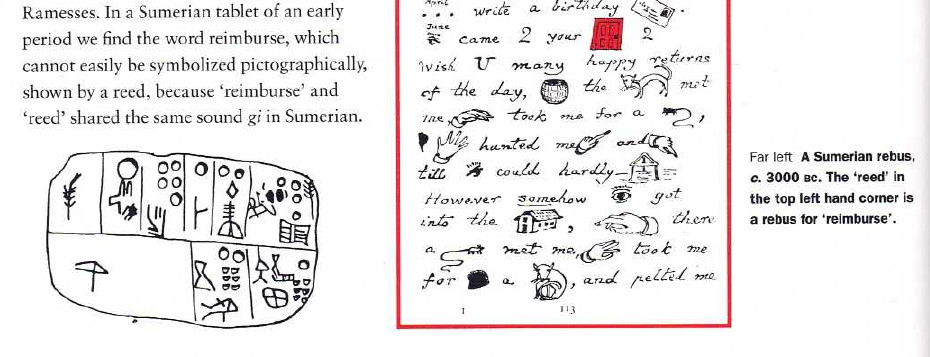 Ramesses. In a Sumerian tablet of an early
period we find the word reimburse, which
cannot easily be symbolized pictographically,
shown by a reed, because ‘reimburse’ and
‘reed’ shared the same sound gi in Sumerian.
write a birthday
June
came 2 your 2
wish U many happy returns
of the day, the met
me, took me for a 2,
hunted me and
till could hardly
However somehow got
into the , there
a met me, took me
for a , and pelted me
1 113
Far left A Sumerian rebus,
c. 3000 BC. The ‘reed’ in
the top left hand corner is
a rebus for ‘reimburse’.